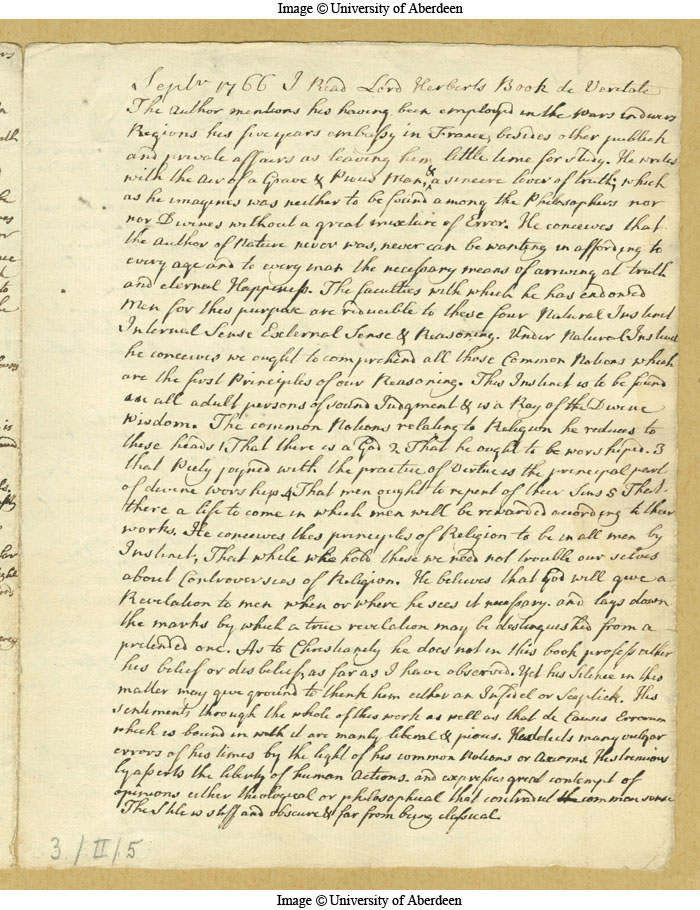 Image © University of Aberdeen
Septr 1766 I Read Lord Herberts Book de Veritate
The author mentions his having been employed in the wars in divers
Regions his five years embassy in France, besides other publick
and private affairs as leaving him little time for study. He writes
with the air of a Grave & Pious Man, & a sincere lover of truth, which
as he imagines was neither to be found among the Philosophers nor
nor Divines without a great mixture of Error. He conceives that
the author of Nature never was, never can be wanting in affording to
every age and to every man the necessary means of arriving at truth
and eternal Happiness. The faculties with which he has endowed
Men for this purpose are reducible to these four Natural Instinct
Internal Sense External Sense & Reasoning. Under Natural Instinct
he conceives we ought to comprehend all those Common Notions which
are the first Principles of our Reasoning. This Instinct is to be found
in all adult persons of sound Judgment & is a Ray of the Divine
Wisdom. The common Notions relating to Religion he reduces to
these heads 1 That there is a God 2 That he ought to be worshiped. 3
that Piety joyned with the practice of Virtue is the principal part
of divine worship 4 That men ought to repent of their Sins 5 That
there a life to come in which men will be rewarded according to their
works. He conceives thes principles of Religion to be in all men by
Instinct, That while we hold these we need not trouble our selves
about Controversies of Religion. He believes that God will give a
Revelation to men when or where he sees it necessary. and lays down
the marks by which a true revelation may be distinguished from a
pretended one. As to Christianity he does not in this book profess either
his belief or disbelief, as far as I have observed. Yet his Silence in this
matter may give ground to think him either an Infidel or Sceptick. His
sentiments through the whole of this work as well as that de Causis Errorum
which is bound in with it are manly liberal & pious. He detects many vulgar
errors of his times by the light of his common Notions or Axioms. He strenuous
ly asserts the liberty of human Actions. and expresses great contempt of
opinions either theological or philosophical that contradict the common sense
The Stile is stiff and obscure & far from being classical
3 / II / 5
Image © University of Aberdeen